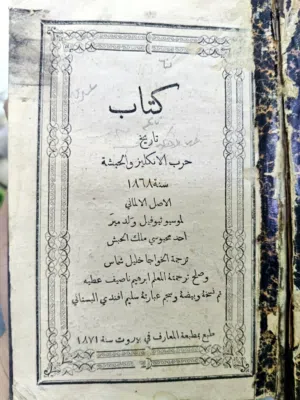 كتاب
تاريخ
حرب الانكليز والحبشة
سنة ١٨٦٨
الاصل الالماني
لموسيو ثيوفيل ولد مير
احد محبوسي ملك الحبش
ترجمة الخواجا خليل شماس
وصلح ترجمتة المعلم ابرهيم ناصيف عطيه
ثم نسخة وبيضة وصحح عبارتة سليم افندي البستاني
طبع بمطبعة المعارف في بيروت سنة ١٨٧١